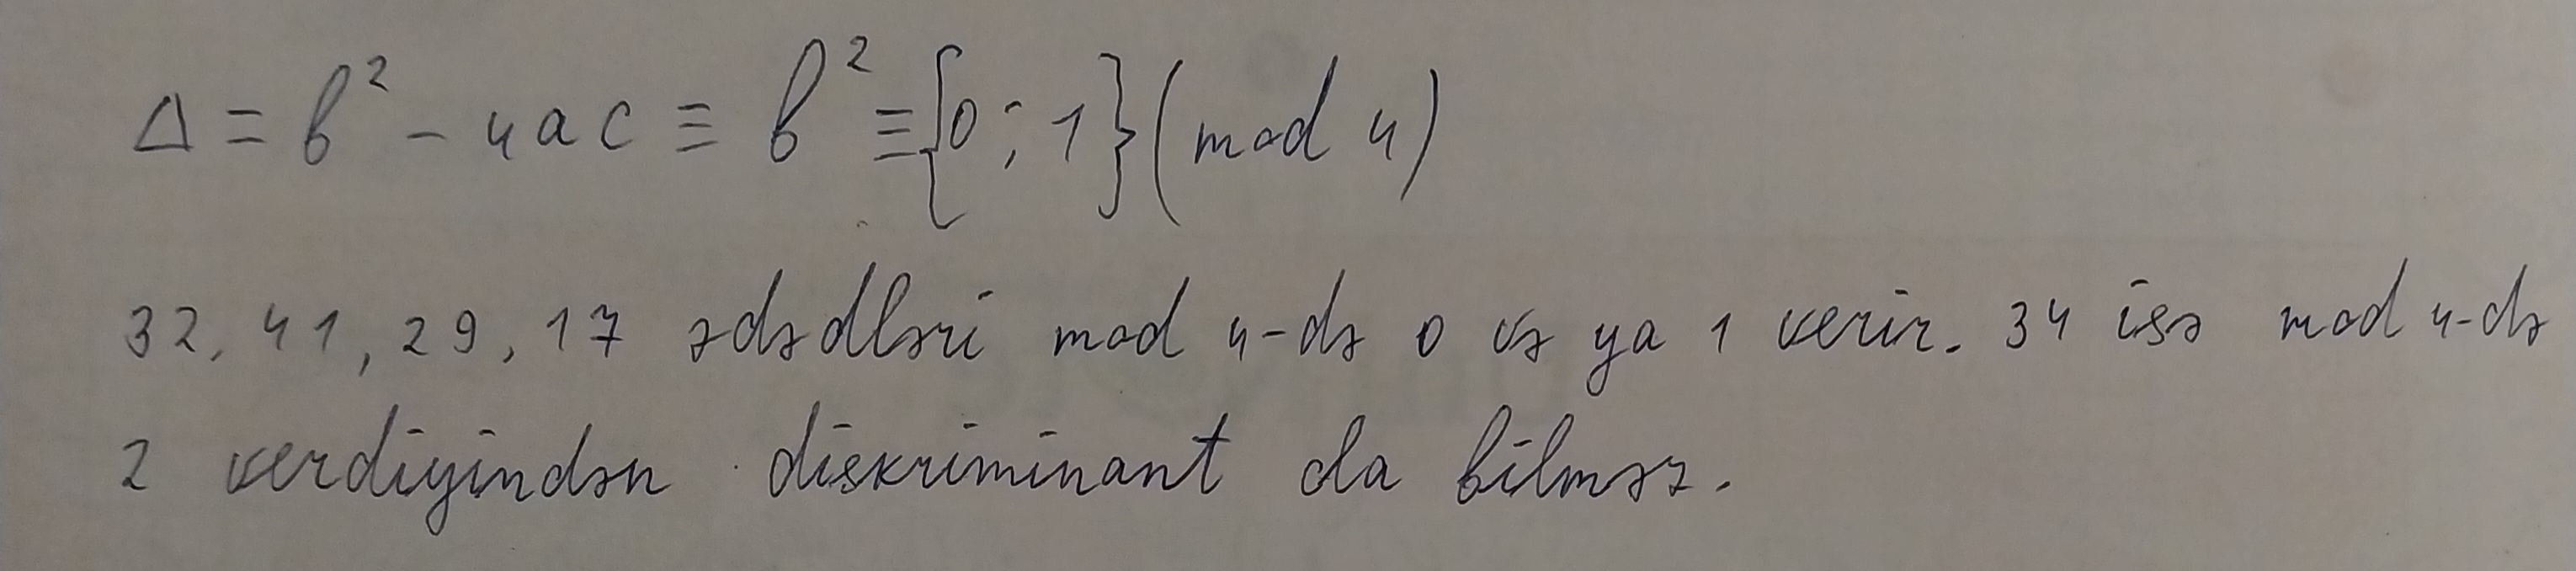 Δ = b² - 4ac ≡ b² ≡ {0; 1} (mod 4)
32, 41, 29, 17 ədədləri mod 4-də 0 və ya 1 verir. 34 isə mod 4-də
2 verdiyindən diskriminant ola bilməz.